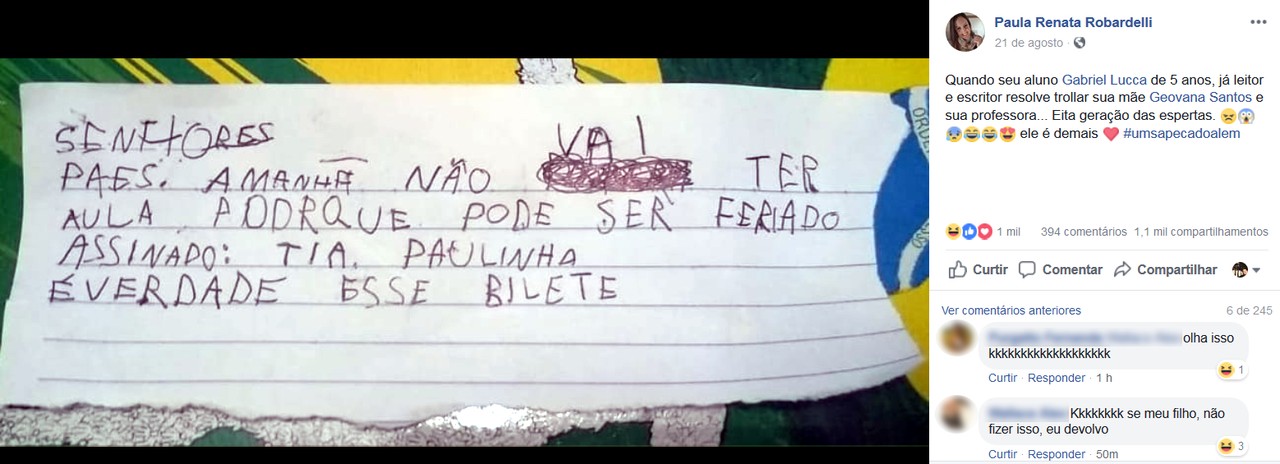 SENHORES
PAES. AMANHÃ NÃO VAI TER
AULA PODRQUE PODE SER FERIADO
ASSINADO: TIA. PAULINHA
ÉVERDADE ESSE BILETE
Paula Renata Robardelli
21 de agosto ·
Quando seu aluno Gabriel Lucca de 5 anos, já leitor
e escritor resolve trollar sua mãe Geovana Santos e
sua professora... Eita geração das espertas. 😣😱
😰😂😂😍 ele é demais ❤️ #umsapecadoalem
1 mil 394 comentários 1,1 mil compartilhamentos
Curtir Comentar Compartilhar
Ver comentários anteriores 6 de 245
olha isso
kkkkkkkkkkkkkkkkkkk
1
Curtir · Responder · 1 h
Kkkkkkkk se meu filho, não
fizer isso, eu devolvo
3
Curtir · Responder · 50m